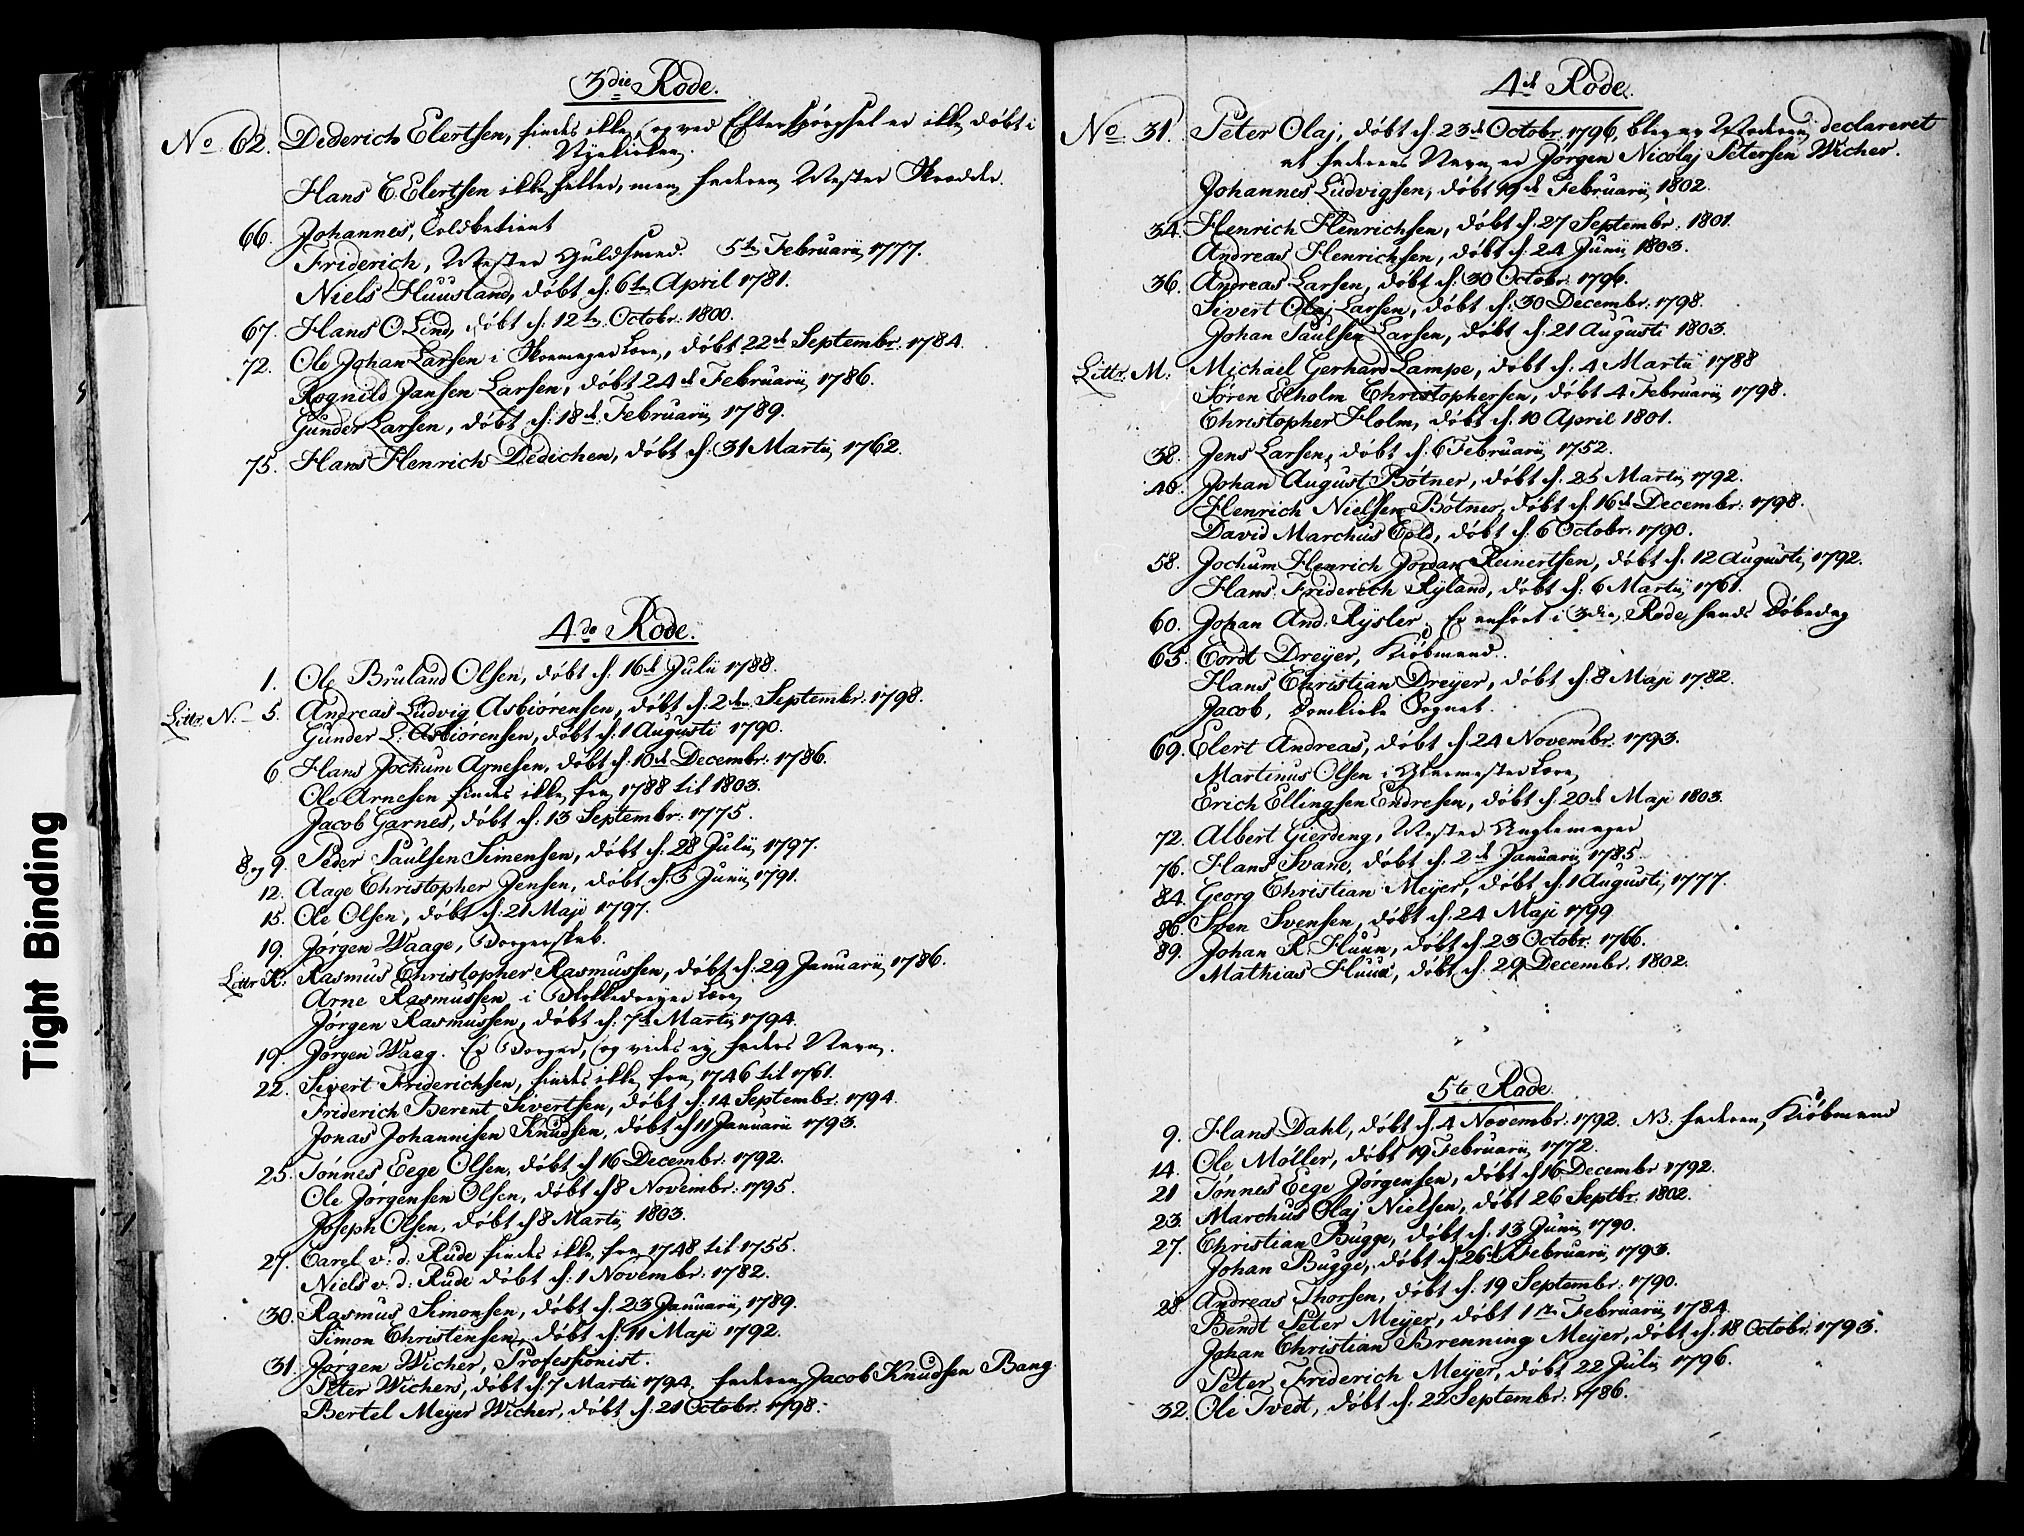 Tight Binding
3die Rode.
No 62. Dederich Elertsen, findes ikke, og ved Efterspørgsel er ikke døbt i
Nyekirken.
Hans C. Elertsen ikke heller, men Faderen Mester Skrædder.
66. Johannes, Toldbetient
Friderich, Mester Guldsmed. 5te Februarii 1777.
Niels Huusland, døbt d. 6te April 1781.
67. Hans O. Lind, døbt d. 12te Octobr: 1800.
72. Ole Johan Larsen i Skoemager Lære, døbt 22de Septembr: 1784.
Rognild Jansen Larsen, døbt 24de Februarii 1786.
Gunder Larsen, døbt d: 18de Februarii 1789.
75. Hans Henrich Dedichen, døbt d: 31 Martii 1762.
4de Rode.
1. Ole Bruland Olsen, døbt d: 16de Julii 1788.
Littr. N: 5. Andreas Ludvig Asbiørensen, døbt d: 2den Septembr: 1798.
Gunder L: Asbiørensen, døbt d: 1 Augusti 1790.
6. Hans Jochum Arnesen, døbt d: 10de Decembr: 1786.
Ole Arnesen findes ikke fra 1788 til 1803.
Jacob Garnes, døbt d: 13 Septembr: 1775.
8 og 9. Peder Paulsen Simensen, døbt d: 28 Julii 1797.
12. Aage Christopher Jensen, døbt d: 5 Junii 1791.
15. Ole Olsen, døbt d: 21 Maji 1797.
19. Jørgen Waage, Borgerskab.
Littr K: Rasmus Christopher Rasmussen, døbt d: 29 Januarii 1786.
Arne Rasmussen i Blokkedreyer Lære
Jørgen Rasmussen, døbt d: 7de Martii 1794.
19. Jørgen Waag. Er Borger, og vides ey Faders Navn.
22. Sivert Friderichsen, findes ikke fra 1746 til 1761.
Friderich Berent Sivertsen, døbt d: 14 Septembr: 1794.
Jonas Johannisen Knudsen, døbt d 11 Januarii 1793.
25. Tønnes Eege Olsen, døbt d 16 Decembr: 1792.
Ole Jørgensen Olsen, døbt d 8 Novembr: 1795.
Joseph Olsen, døbt d 8 Martii 1803.
27. Carel v: d: Rude findes ikke fra 1748 til 1755.
Niels v: d: Rude døbt d: 1 Novembr: 1782.
30. Rasmus Simonsen, døbt d: 23 Januarii 1789.
Simon Christensen, døbt d: 11 Maji 1792.
31. Jørgen Wicher, Professionist.
Peter Wichers, døbt d: 7 Martii 1794, Faderen Jacob Knudsen Bang.
Bertel Meyer Wicher, døbt d: 21 Octobr: 1798.
4de Rode.
No 31. Peter Olaj, døbt d: 23de Octobr: 1796, blev av Moderen declareret
at Faderens Navn er Jørgen Nicolaj Petersen Wicher.
Johannes Ludvigsen, døbt 19de Februarii 1802.
34. Henrich Henrichsen, døbt d: 27 Septembr: 1801.
Andreas Henrichsen, døbt d: 24 Junii 1803.
36. Andreas Larsen, døbt d: 30 Octobr: 1796.
Sivert Olaj Larsen, døbt d: 30 Decembr: 1798.
Johan Paulsen Larsen, døbt d: 21 Augusti 1803.
Littr. M: Michael Gerhard Lampe, døbt d: 4 Martii 1788
Søren Eeholm Christophersen, døbt 4 Februarii 1798.
Christopher Holm, døbt d: 10 April 1801.
38. Jens Larsen, døbt d: 6 Februarii 1752.
40. Johan August Bøtner, døbt d: 25 Martii 1792.
Henrich Nielsen Bøtner, døbt d: 16de Decembr: 1798.
David Marchus Eold, døbt d: 6 Octobr: 1790.
58. Jochum Henrich Jordan Reinertsen, døbt d: 12 Augusti 1792.
Hans Friderich Ryland, døbt d: 6 Martii 1761.
60. Johan And. Rysler. Er anført i 3die Rode hands Døbedag
65. Cordt Dreyer, Kiøbmand.
Hans Christian Dreyer, døbt d: 8 Maji 1782.
Jacob, Domkirke Sognet.
69. Elert Andreas, døbt d: 24 Novembr: 1793.
Martinus Olsen i Lære
Erich Ellingsen Endresen, døbt d: 20de Maji 1803.
72. Albert Gierding, Mester Naglemager
76. Hans Svane, døbt d: 2de Januarii 1785.
84. Georg Christian Meyer, døbt d: 1 Augusti 1777.
86. Sven Svensen, døbt d: 24 Maji 1799
89. Johan R. Huun, døbt d: 23 Octobr: 1766.
Mathias Huun, døbt d: 29 Decembr: 1802.
5te Rode.
9. Hans Dahl, døbt d: 4 Novembr: 1792. NB: Faderen, Kiøbmand
14. Ole Møller, døbt 19 Februarii 1772.
21 Tønnes Eege Jørgensen, døbt d 16 Decembr 1792.
23. Marchus Olaj Nielsen, døbt 26 Septbr: 1802.
27. Christian Bugge, døbt d: 13 Junii 1790.
Johan Bugge, døbt d 26de Februarii 1793.
28. Andreas Thorsen, døbt d: 19 Septembr: 1790.
Bendt Peter Meyer, døbt 1te Februarii 1784
Johan Christian Brenning Meyer, døbt d: 18 Octobr: 1793.
Peter Friderich Meyer, døbt 22 Julii 1796.
32. Ole Tvedt, døbt d: 22 Septembr: 1786.